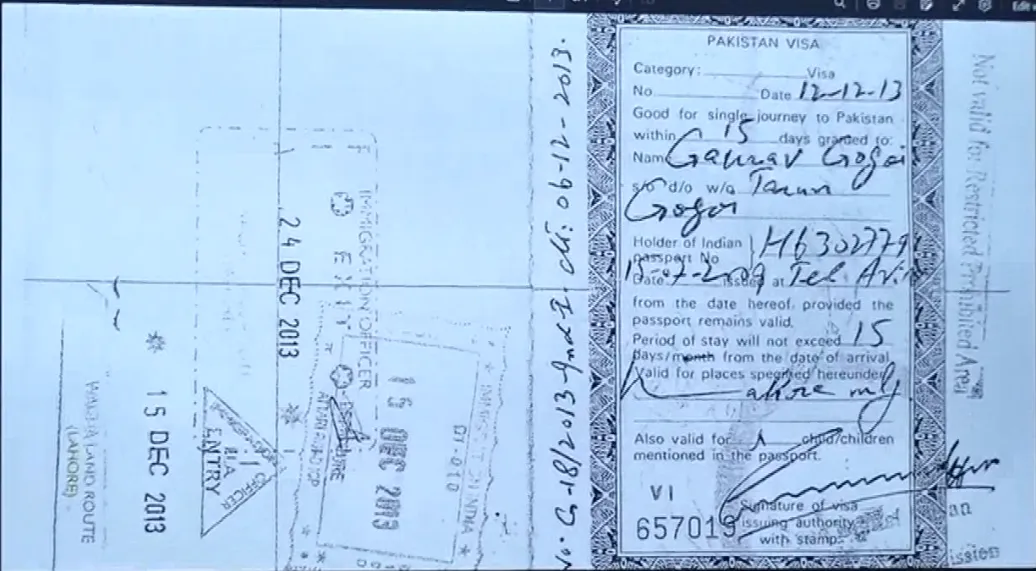 PAKISTAN VISA
Category: Visa
No Date 12-12-13
Good for single journey to Pakistan
within 15 days granted to:
Name Gaurav Gogoi
s/o d/o w/o Tarun
Gogoi
Holder of Indian
passport No
Date issued at Tel Aviv
from the date hereof, provided the
passport remains valid.
Period of stay will not exceed 15
days/month from the date of arrival
Valid for places specified hereunder
Lahore only
Also valid for child/children
mentioned in the passport.
VI
657019
Signature of visa
issuing authority
with stamp
Not valid for Restricted Prohibited Area
No. G-18/2013- dt: 06-12-2013.
IMMIGRATION OFFICER
EXIT
24 DEC 2013
15 DEC 2013
WAGHA LAND ROUTE
(LAHORE)
ENTRY
OFFICER
15 DEC 2013
DI-010